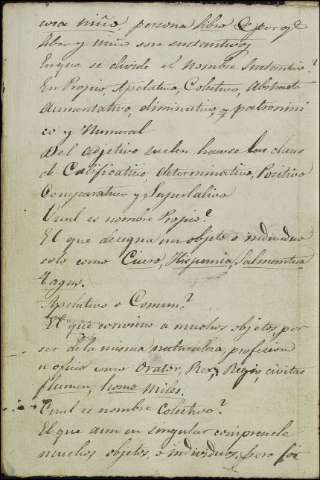 cosa niño persona libro &c porq.e
libro y niño son sustantivos
En que se divide el nombre Sustantivo?
En Propio, Apelativo, Coletivo, Abstrato
Aumentativo, diminutivo, y patronimi
co y Numeral
Del Adjetivo suelen hacerse las clases
de Calificativo, determinativo, Positivo
Comparativo y Superlativo
Cual es nombre Propio?
El que designa un objeto o individuo
solo como Hispania, Salmantica
Tagus.
Apelativo o Comun?
El que conviene a muchos objetos por
ser de la misma naturaleza, profesion
u oficio como Orator, Rex, Regis, civitas
flumen, homo Miles.
Cual es nombre Coletivo?
El que aun en singular comprende
muchos objetos, o individuos, pero